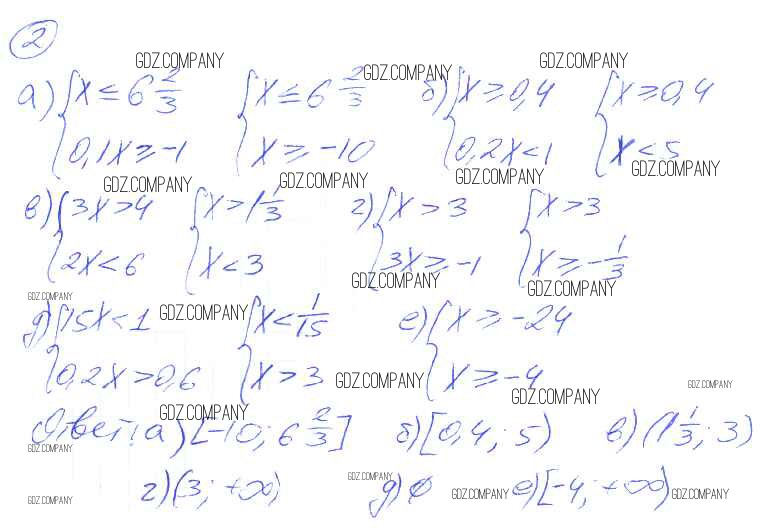 2
GDZ.COMPANY GDZ.COMPANY GDZ.COMPANY
а) { x ≤ 6 2/3 { x ≤ 6 2/3 б) { x ≥ 0,4 { x ≥ 0,4
0,1x ≥ -1 x ≥ -10 0,2x < 1 x < 5
GDZ.COMPANY GDZ.COMPANY GDZ.COMPANY GDZ.COMPANY
в) { 3x > 4 { x > 1 1/3 г) { x > 3 { x > 3
2x < 6 x < 3 3x ≥ -1 x ≥ -1/3
GDZ.COMPANY GDZ.COMPANY GDZ.COMPANY
д) { 15x < 1 GDZ.COMPANY { x < 1/15 е) { x ≥ -24
0,2x > 0,6 x > 3 GDZ.COMPANY x ≥ -4
GDZ.COMPANY GDZ.COMPANY GDZ.COMPANY
Ответ: а) [-10; 6 2/3] б) [0,4; 5) в) (1 1/3; 3)
GDZ.COMPANY
г) (3; +∞) GDZ.COMPANY д) ∅ е) [-4; +∞)
GDZ.COMPANY GDZ.COMPANY GDZ.COMPANY